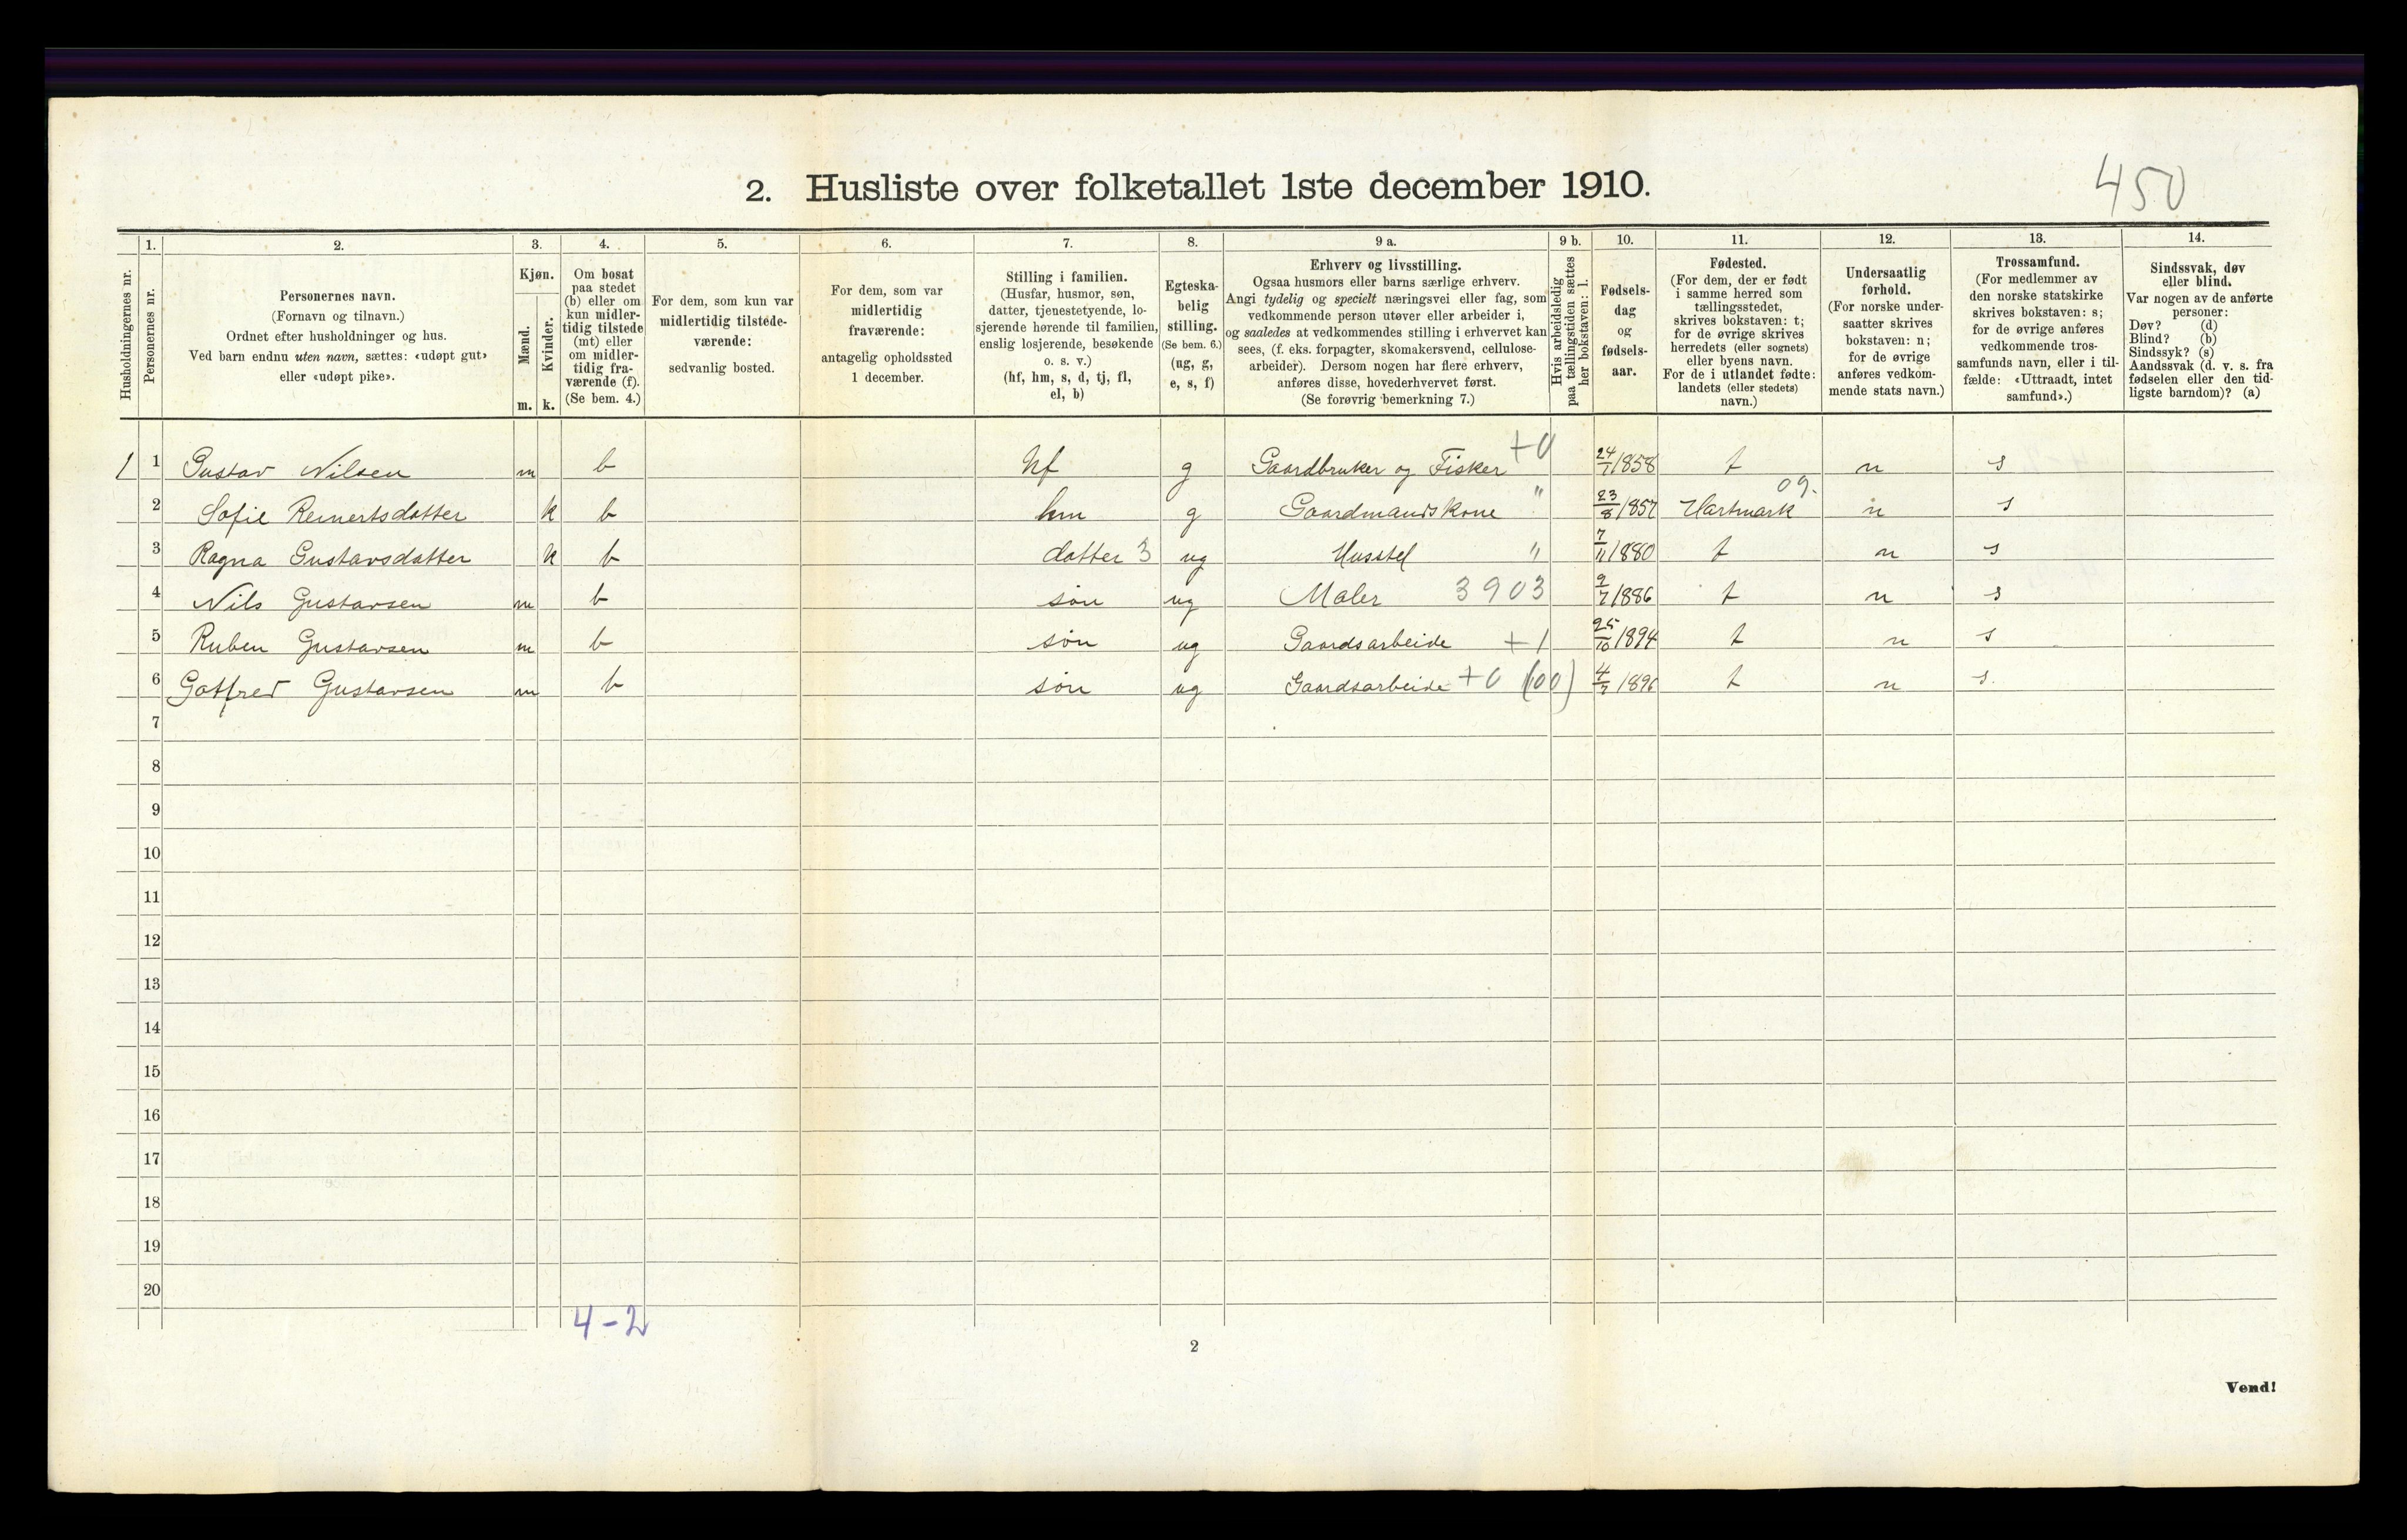 450
2. Husliste over folketallet 1ste december 1910.
1. 2. 3. 4. 5. 6. 7. 8. 9 a. 9 b. 10. 11. 12. 13. 14.
Husholdningernes nr.
Personernes nr.
Personernes navn.
(Fornavn og tilnavn.)
Ordnet efter husholdninger og hus.
Ved barn endnu uten navn, sættes: «udøpt gut»
eller «udøpt pike».
Kjøn.
Mænd.
m.
Kvinder.
k.
Om bosat
paa stedet
(b) eller om
kun midler-
tidig tilstede
(mt) eller
om midler-
tidig fra-
værende (f).
(Se bem. 4.)
For dem, som kun var
midlertidig tilstede-
værende:
sedvanlig bosted.
For dem, som var
midlertidig
fraværende:
antagelig opholdssted
1 december.
Stilling i familien.
(Husfar, husmor, søn,
datter, tjenestetyende, lo-
sjerende hørende til familien,
enslig losjerende, besøkende
o. s. v.)
(hf, hm, s, d, tj, fl,
el, b)
Egteska-
belig
stilling.
(Se bem. 6.)
(ug, g,
e, s, f)
Erhverv og livsstilling.
Ogsaa husmors eller barns særlige erhverv.
Angi tydelig og specielt næringsvei eller fag, som
vedkommende person utøver eller arbeider i,
og saaledes at vedkommendes stilling i erhvervet kan
sees, (f. eks. forpagter, skomakersvend, cellulose-
arbeider). Dersom nogen har flere erhverv,
anføres disse, hovederhvervet først.
(Se forøvrig bemerkning 7.)
Hvis arbeidsledig
paa tællingstiden sættes
her bokstaven: l.
Fødsels-
dag
og
fødsels-
aar.
Fødested.
(For dem, der er født
i samme herred som
tællingsstedet,
skrives bokstaven: t;
for de øvrige skrives
herredets (eller sognets)
eller byens navn.
For de i utlandet fødte:
landets (eller stedets)
navn.)
Undersaatlig
forhold.
(For norske under-
saatter skrives
bokstaven: n;
for de øvrige
anføres vedkom-
mende stats navn.)
Trossamfund.
(For medlemmer av
den norske statskirke
skrives bokstaven: s;
for de øvrige anføres
vedkommende tros-
samfunds navn, eller i til-
fælde: «Uttraadt, intet
samfund».)
Sindssvak, døv
eller blind.
Var nogen av de anførte
personer:
Døv? (d)
Blind? (b)
Sindssyk? (s)
Aandssvak (d. v. s. fra
fødselen eller den tid-
ligste barndom)? (a)
1 1 Gustav Nilsen m b hf g Gaardbruker og Fisker +0 24/7 1858 t n s
2 Sofie Reinertsdatter k b hm g Gaardmandskone " 23/8 1857 Hartmark 09. n s
3 Ragna Gustavsdatter k b datter 3 ug Husstel " 7/11 1880 t n s
4 Nils Gustavsen m b søn ug Maler 3903 9/7 1886 t n s
5 Ruben Gustavsen m b søn ug Gaardsarbeide +1 25/10 1894 t n s
6 Gotfred Gustavsen m b søn ug Gaardsarbeide +0 (00) 4/7 1896 t n s.
7
8
9
10
11
12
13
14
15
16
17
18
19
20
4-2
2
Vend!